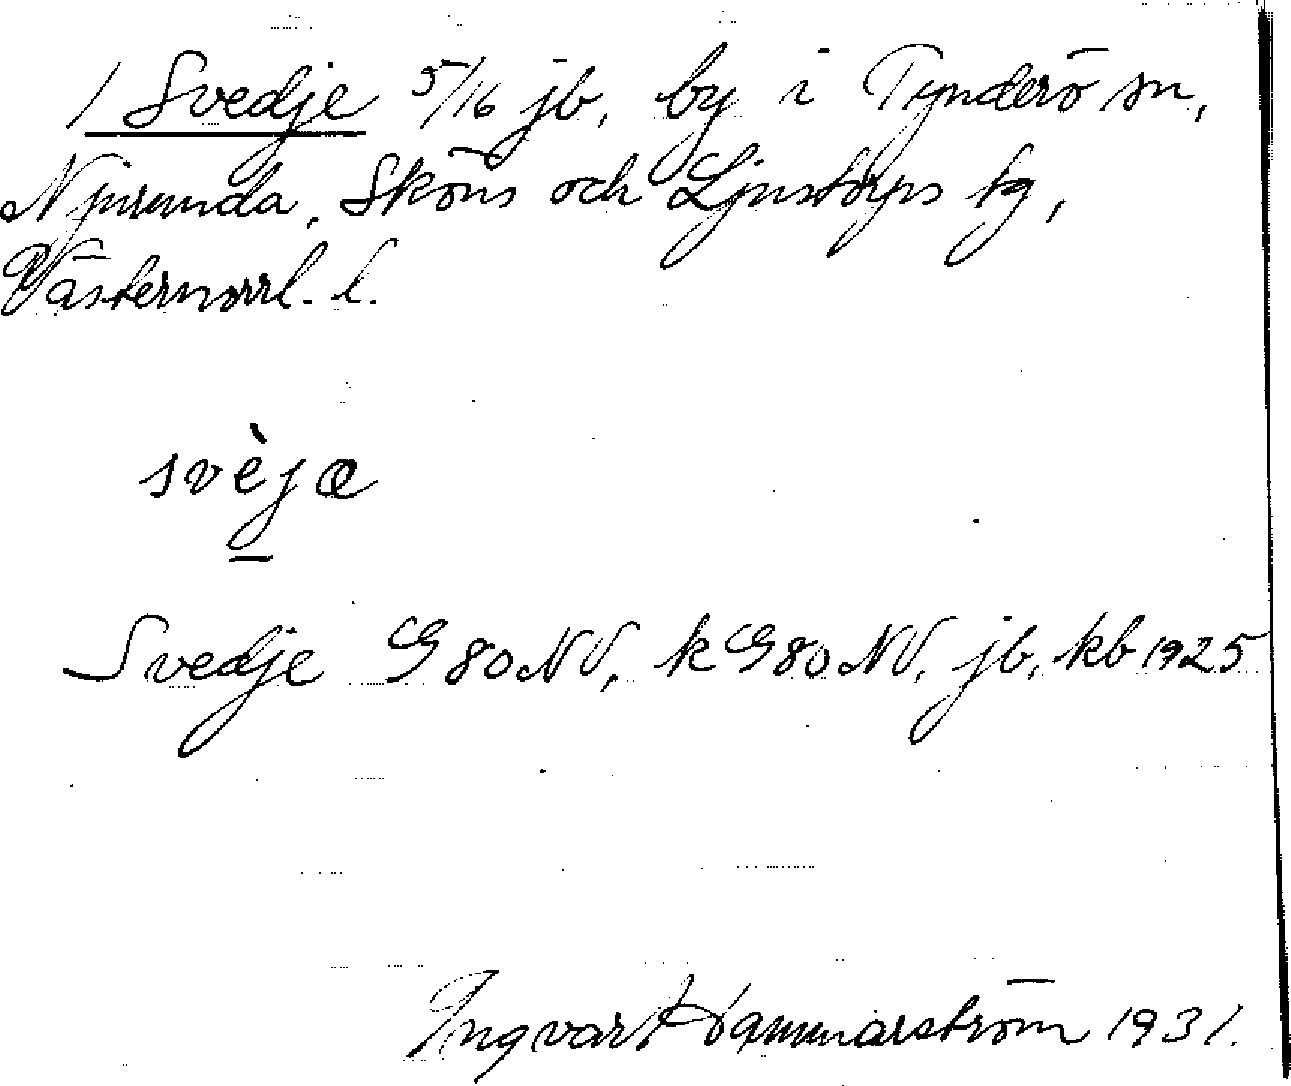 1 Svedje 5/16 jb, by i Tynderö sn,
Njurunda, Sköns och Ljustorps tg,
Västernorrl. l.
svèjæ
Svedje G 80 NV, k G 80 NV, jb, kb 1925
Ingvar Hammarström 1931.